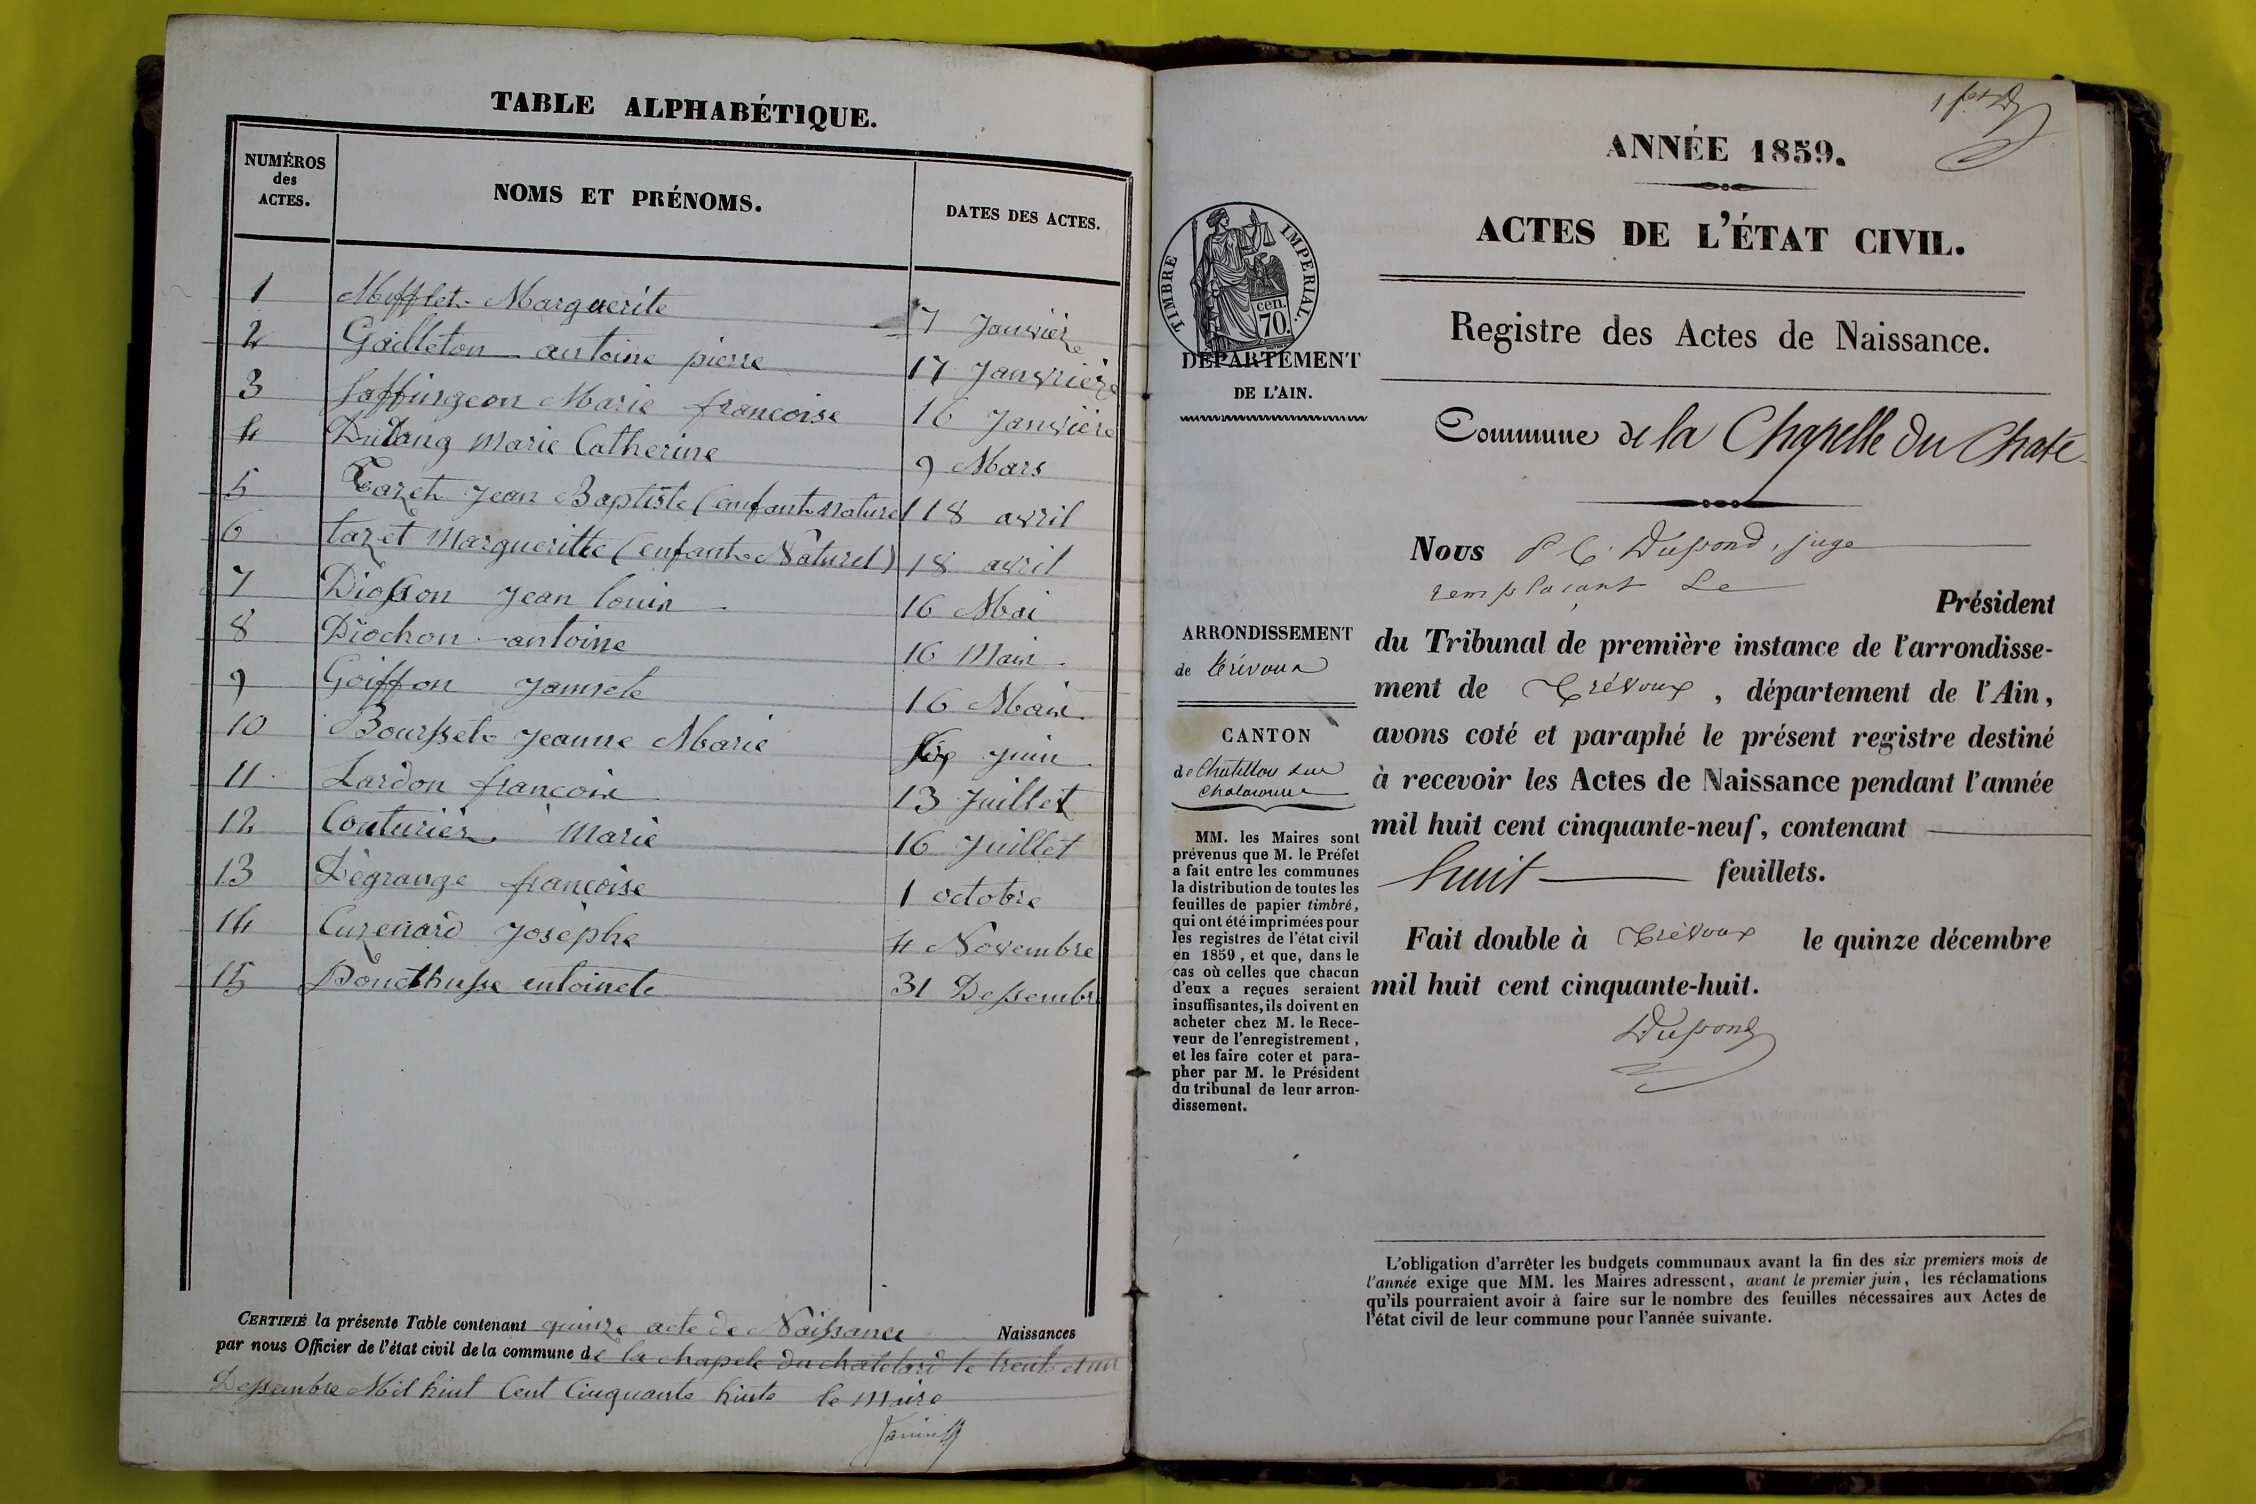 TABLE ALPHABÉTIQUE.
NUMÉROS des ACTES.
NOMS ET PRÉNOMS.
DATES DES ACTES.
1 Mofflet Marguerite 7 Janvière
2 Gailleton antoine pierre 17 Janvrière
3 Laffurgeon Marie francoise 16 Janvière
4 Dudang Marie Catherine 9 Mars
5 Tazet Jean Baptiste (enfant naturel 18 avril
6 tazet Margueritte (enfant Naturel) 18 avril
7 Jean louis 16 Mai
8 Diochon antoine 16 Mais
9 Goiffon 16 Mais
10 Bourset Jeanne Marie juin
11 Lardon francois 13 Juillet
12 Couturier Marie 16 Juillet
13 Dégrange françoise 1 octobre
14 Curenard Josèphe 4 Novembre
15 entoinete 31 Dessembre
CERTIFIÉ la présente Table contenant quinze acte de Naissance Naissances
par nous Officier de l'état civil de la commune de la chapele du chatelard le trente et un
Dessembre Mil huit Cent Cinquante huite le Maire
ANNÉE 1859.
ACTES DE L'ÉTAT CIVIL.
Registre des Actes de Naissance.
TIMBRE IMPERIAL.
cen.
70.
DÉPARTEMENT
DE L'AIN.
Commune de la Chapelle du Chate
Nous P C Dupond, juge
remplaçant Le
Président
du Tribunal de première instance de l'arrondisse-
ment de Trévoux, département de l'Ain,
avons coté et paraphé le présent registre destiné
à recevoir les Actes de Naissance pendant l'année
mil huit cent cinquante-neuf, contenant
huit feuillets.
Fait double à Trévoux le quinze décembre
mil huit cent cinquante-huit.
Dupond
ARRONDISSEMENT
de trévoux
CANTON
de Chatillon sur
chalaronne
MM. les Maires sont
prévenus que M. le Préfet
a fait entre les communes
la distribution de toutes les
feuilles de papier timbré,
qui ont été imprimées pour
les registres de l'état civil
en 1859, et que, dans le
cas où celles que chacun
d'eux a reçues seraient
insuffisantes, ils doivent en
acheter chez M. le Rece-
veur de l'enregistrement,
et les faire coter et para-
pher par M. le Président
du tribunal de leur arron-
dissement.
L'obligation d'arrêter les budgets communaux avant la fin des six premiers mois de
l'année exige que MM. les Maires adressent, avant le premier juin, les réclamations
qu'ils pourraient avoir à faire sur le nombre des feuilles nécessaires aux Actes de
l'état civil de leur commune pour l'année suivante.